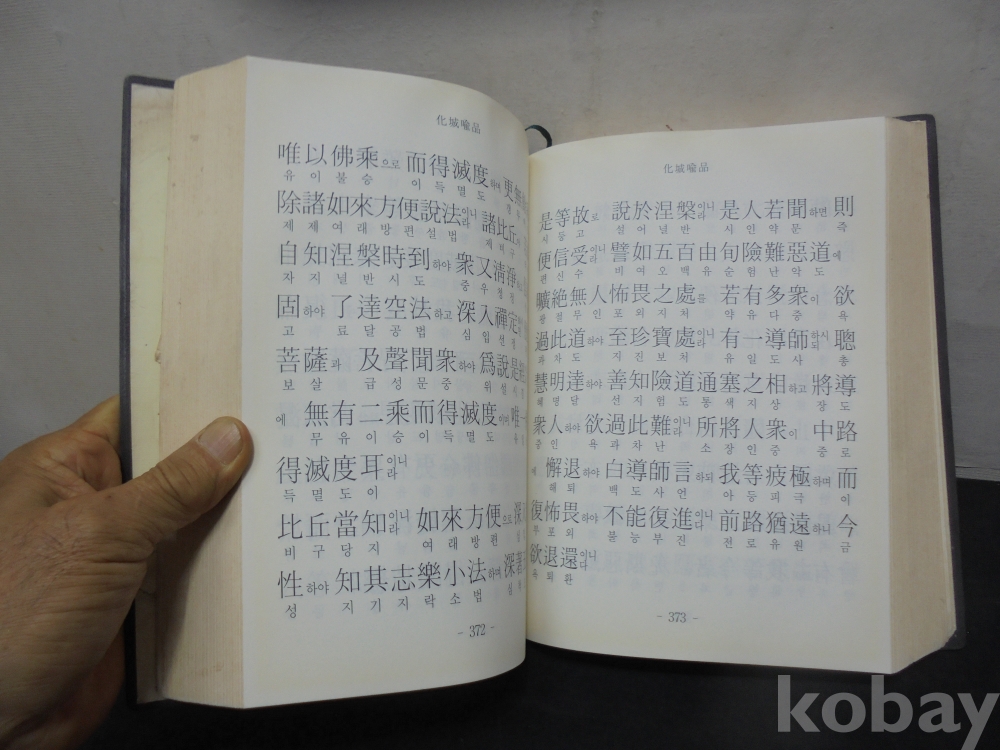 化城喩品
唯以佛乘으로 而得滅度하며 更無
유이불승 이득멸도
除諸如來方便說法이니라 諸比丘
제제여래방편설법 제비구
自知涅槃時到하야 衆又淸淨
자지널반시도 중우청정
固하야 了達空法하고 深入禪定
고 료달공법 심입선정
菩薩과 及聲聞衆하야 爲說是
보살 급성문중 위설시
에 無有二乘而得滅度이며 唯一
무유이승이득멸도 유
得滅度耳이니라
득멸도이
比丘當知이니라 如來方便으로 深
비구당지 여래방편
性하야 知其志樂小法하며 深著
성 지기지락소법 심
- 372 -
化城喩品
是等故로 說於涅槃이니라 是人若聞하면 則
시등고 설어널반 시인약문 즉
便信受이니라 譬如五百由旬險難惡道에
편신수 비여오백유순험난악도
曠絶無人怖畏之處를 若有多衆이 欲
광절무인포외지처 약유다중 욕
過此道하야 至珍寶處이니 有一導師하시 聰
과차도 지진보처 유일도사 총
慧明達하야 善知險道通塞之相하고 將導
혜명달 선지험도통색지상 장도
衆人하야 欲過此難이니라 所將人衆이 中路
중인 욕과차난 소장인중 중로
에 懈退하야 白導師言하되 我等疲極하며 而
해퇴 백도사언 아등피극 이
復怖畏하야 不能復進이니다 前路猶遠하니 今
부포외 불능부진 전로유원 금
欲退還이니다
욕퇴환
- 373 -
kobay